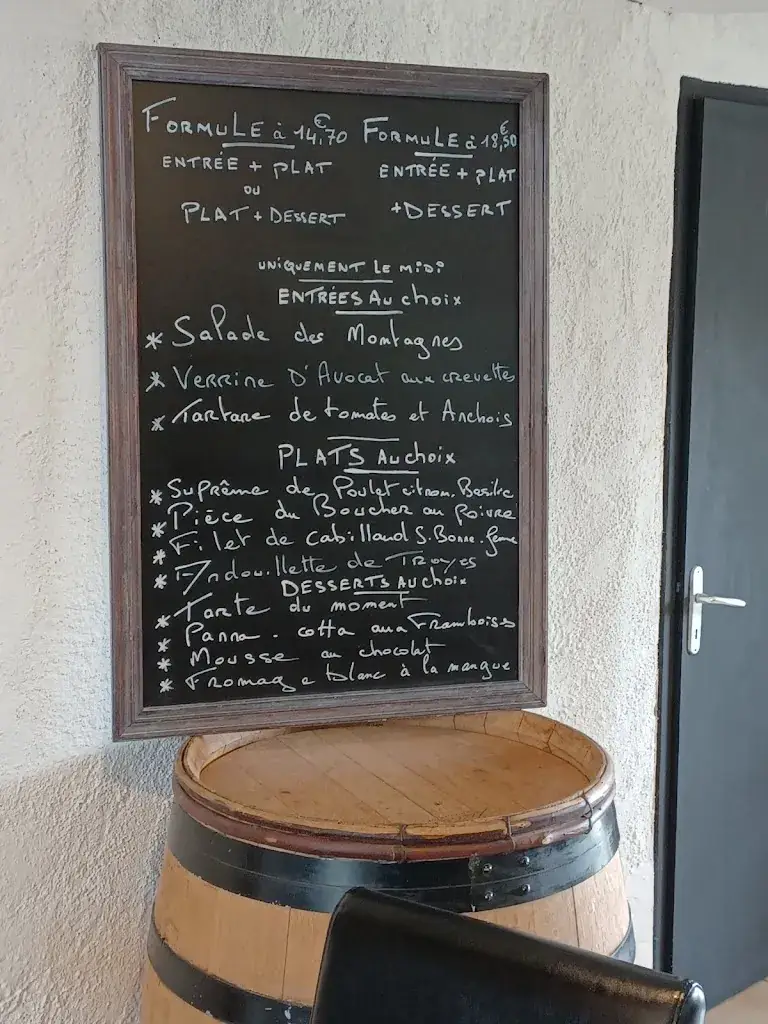 FORMULE à 14,70€
ENTRÉE + PLAT
OU
PLAT + DESSERT
FORMULE à 18,50€
ENTRÉE + PLAT
+ DESSERT
UNIQUEMENT LE MIDI
ENTRÉES AU choix
* Salade des Montagnes
* VERRINE D'AVOCAT aux crevettes
* Tartare de tomates et Anchois
PLATS AU choix
* Suprême de Poulet citron. Basilic
* Pièce du Boucher au Poivre
* Filet de Cabillaud S. Bonne. femme
* Andouillette de Troyes
DESSERTS AU choix
* Tarte du moment
* Panna. cotta aux Framboises
* Mousse au chocolat
* Fromage blanc à la mangue